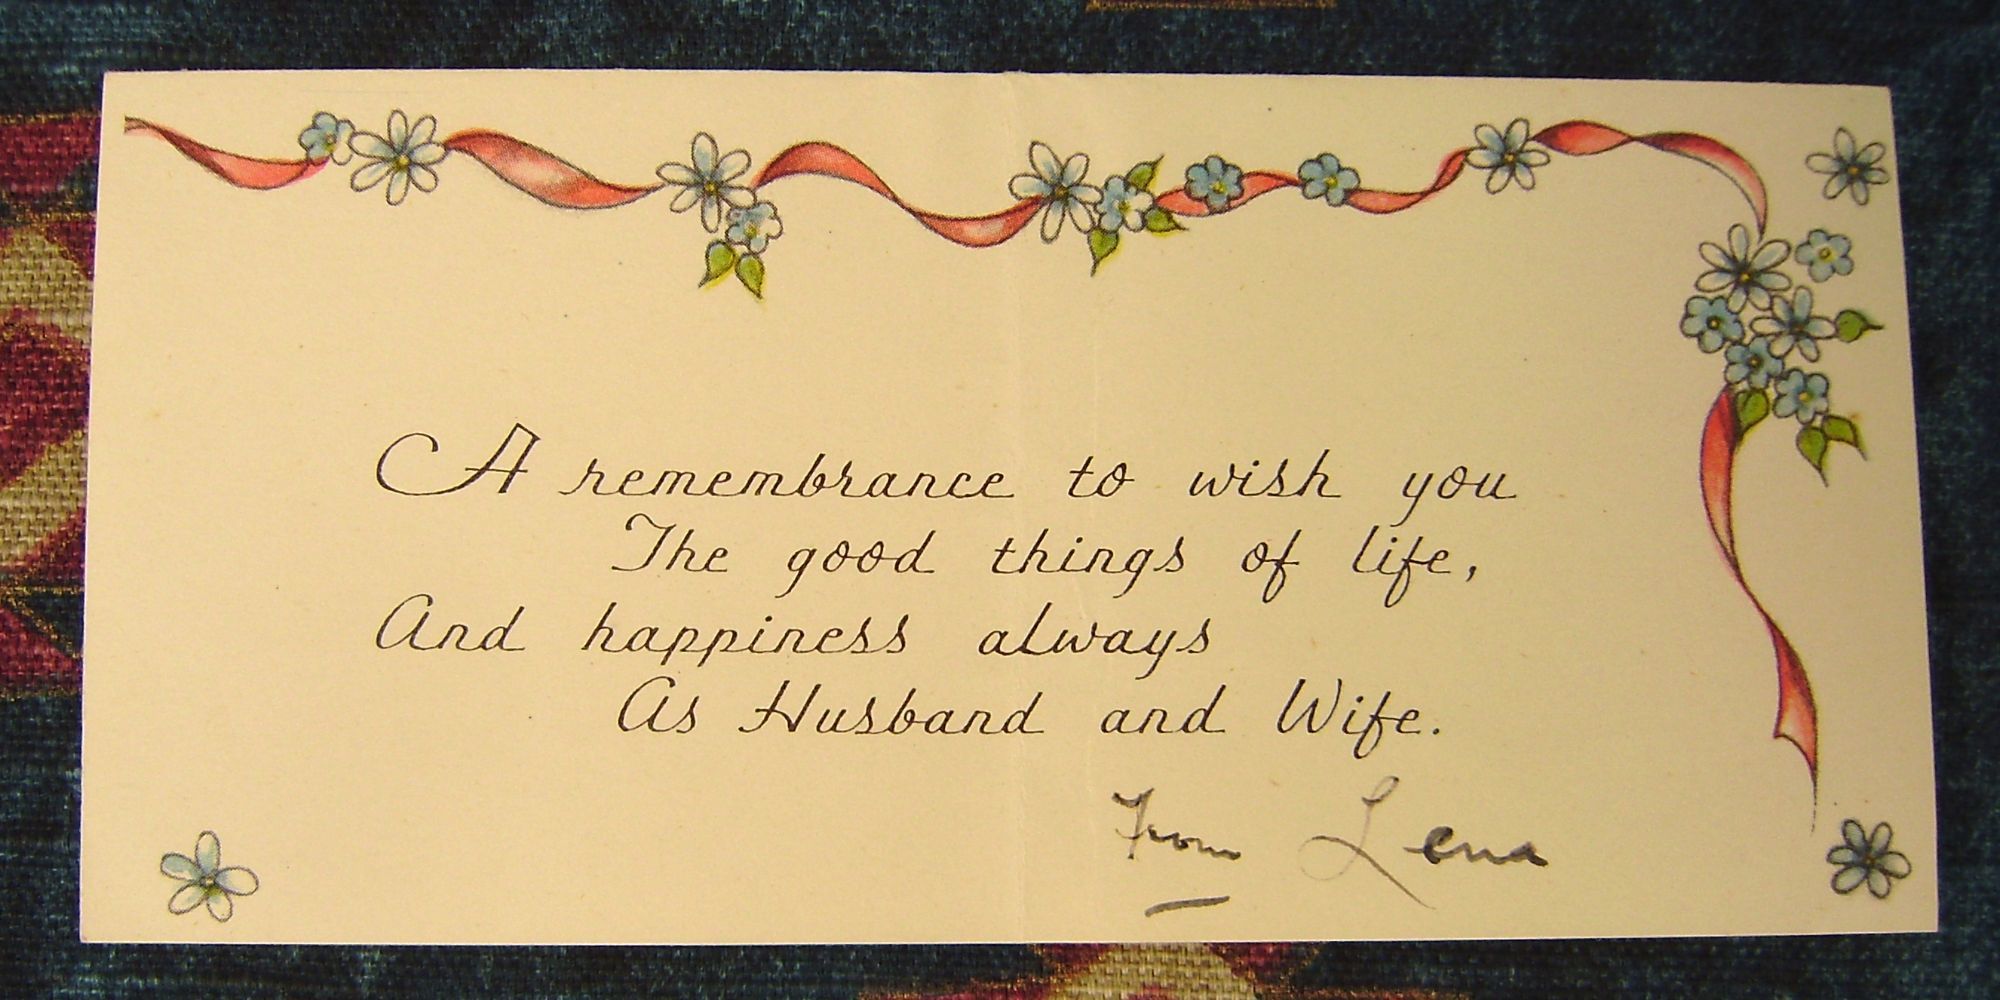 A remembrance to wish you
The good things of life,
And happiness always
As Husband and Wife.
From Lena